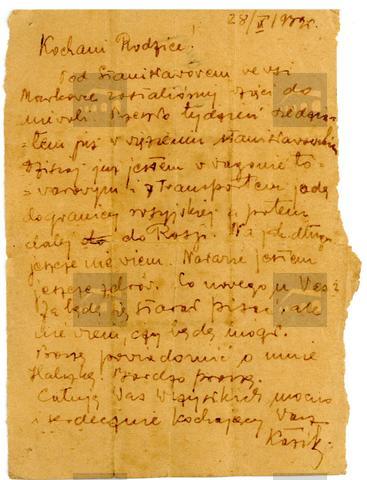 28/X 1939r.
Kochani Rodzice!
Pod Stanisławowem we wsi
zostaliśmy wzięci do
niewoli. Przeszło tydzień siedzia-
-łem już w więzieniu stanisławowskim
Dzisiaj już jestem w wagonie to-
warowym i z transportem jadę
do granicy rosyjskiej a potem
dalej do Rosji. Na jak długo
jeszcze nie wiem. Narazie jestem
jeszcze zdrów. Co nowego u Was?
Będę się starał pisać, ale
nie wiem, czy będę mógł.
Proszę powiadomić o mnie
Bardzo proszę.
Całuję Was wszystkich mocno
i serdecznie kochający Was
Kazik.